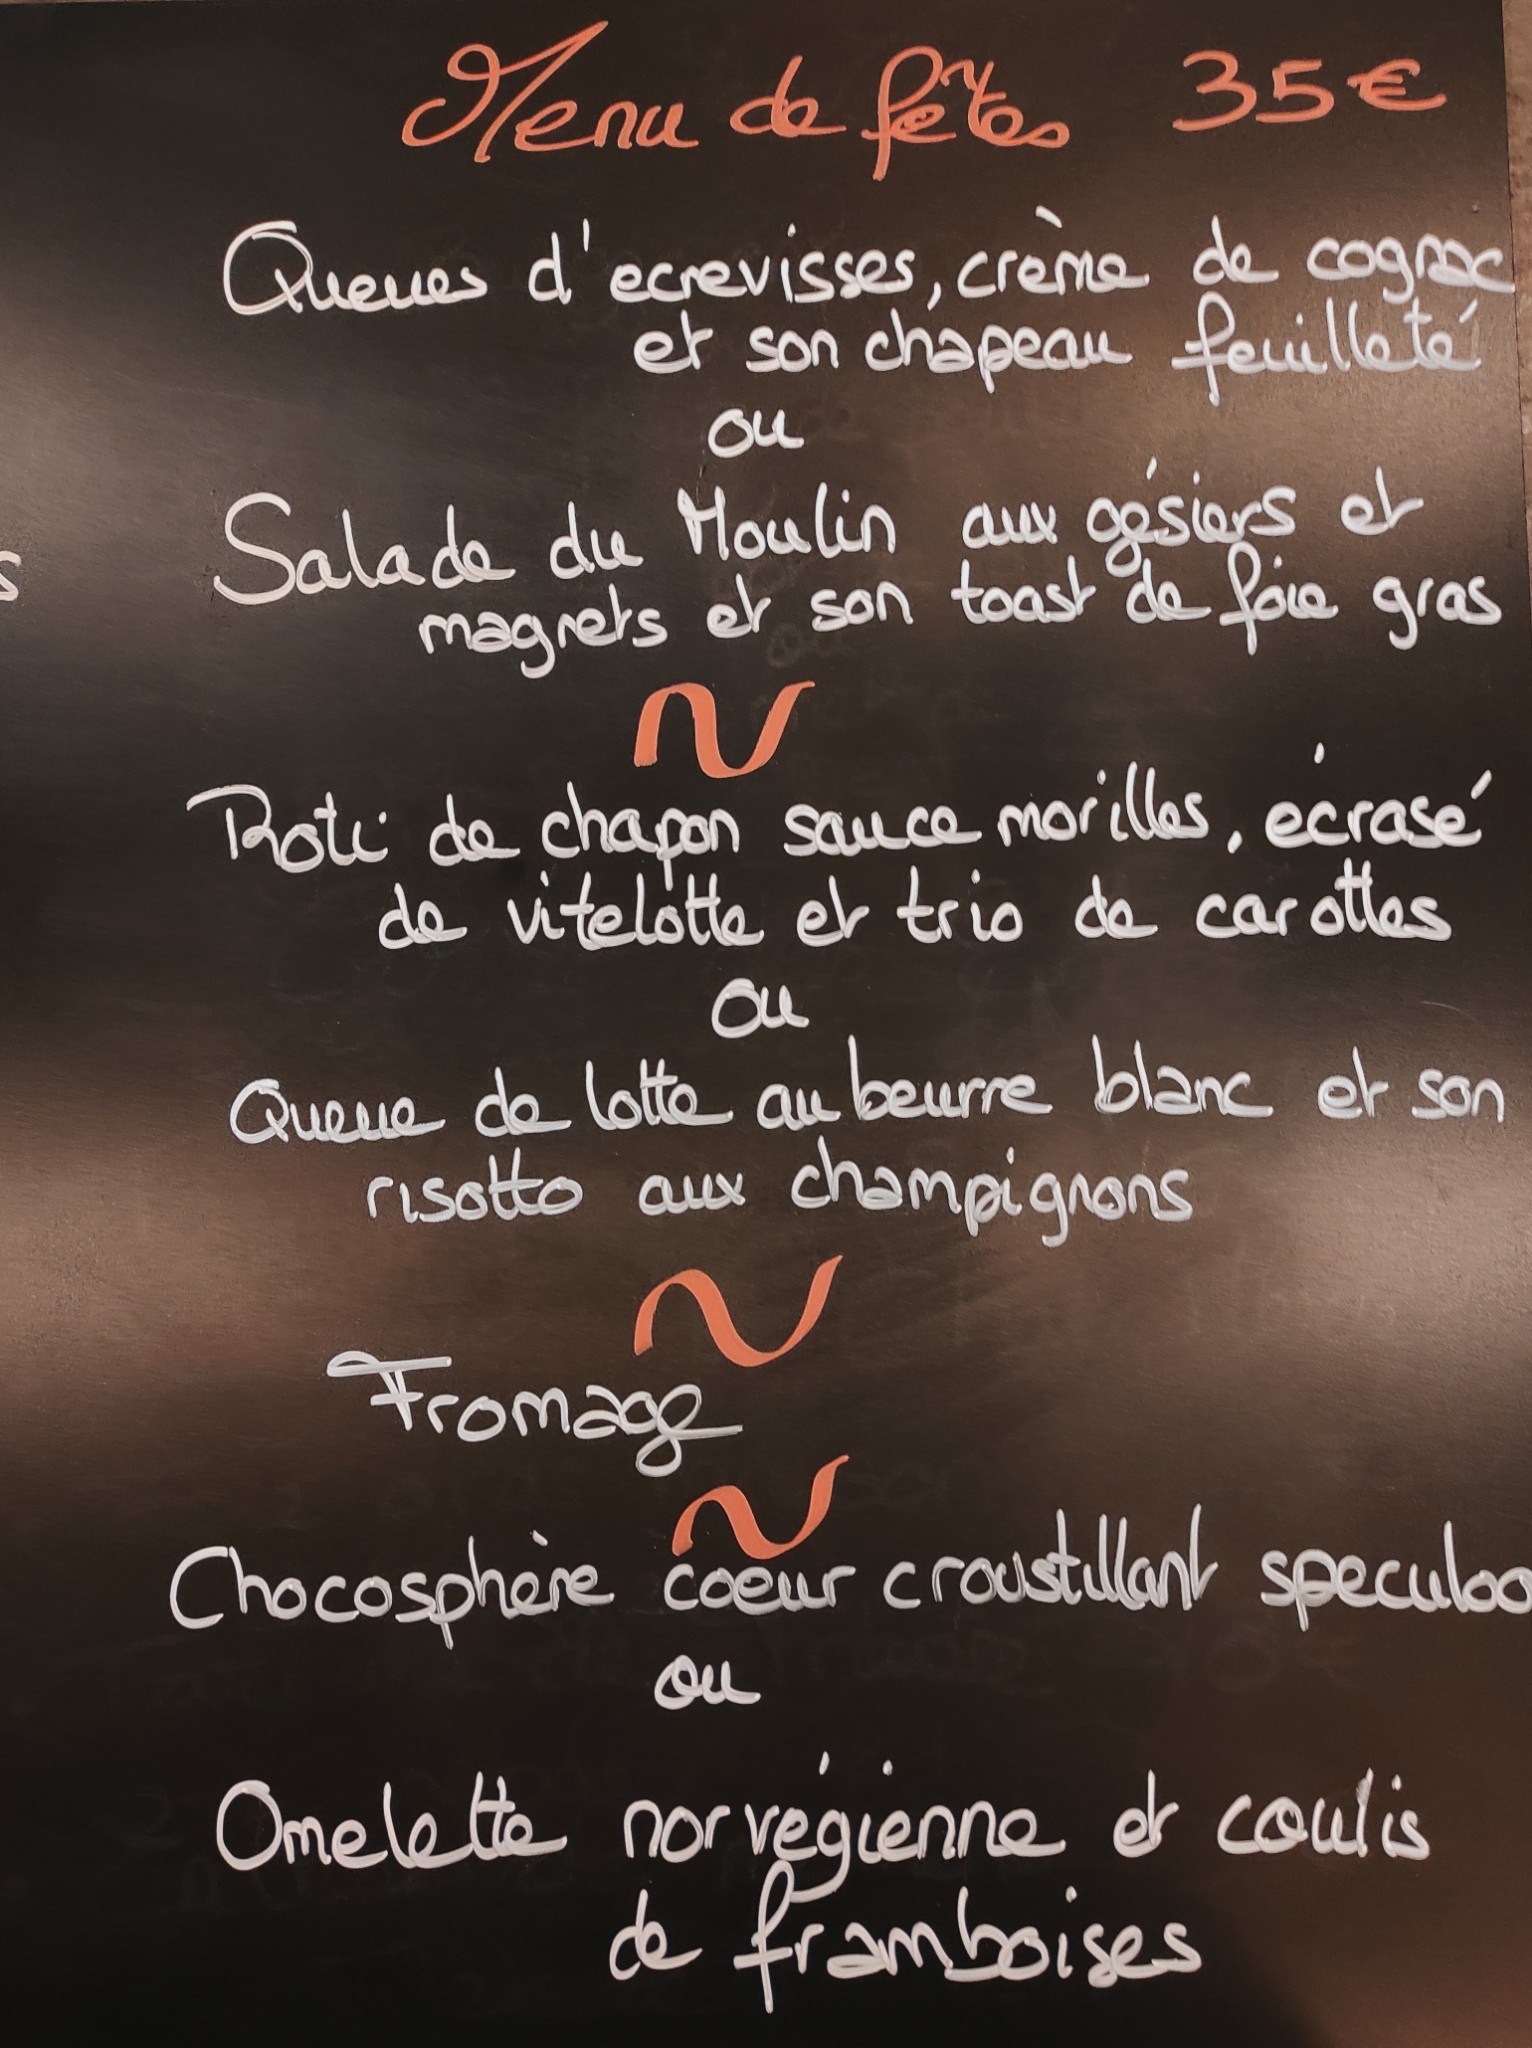 Menu de fêtes 35€
Queues d'ecrevisses, crème de cognac
et son chapeau feuilleté
ou
Salade du Moulin aux gésiers et
magrets et son toast de foie gras
~
Roti de chapon sauce morilles, écrasé
de vitelotte et trio de carottes
ou
Queue de lotte au beurre blanc et son
risotto aux champignons
~
Fromage
~
Chocosphère coeur croustillant speculoo
ou
Omelette norvégienne et coulis
de framboises